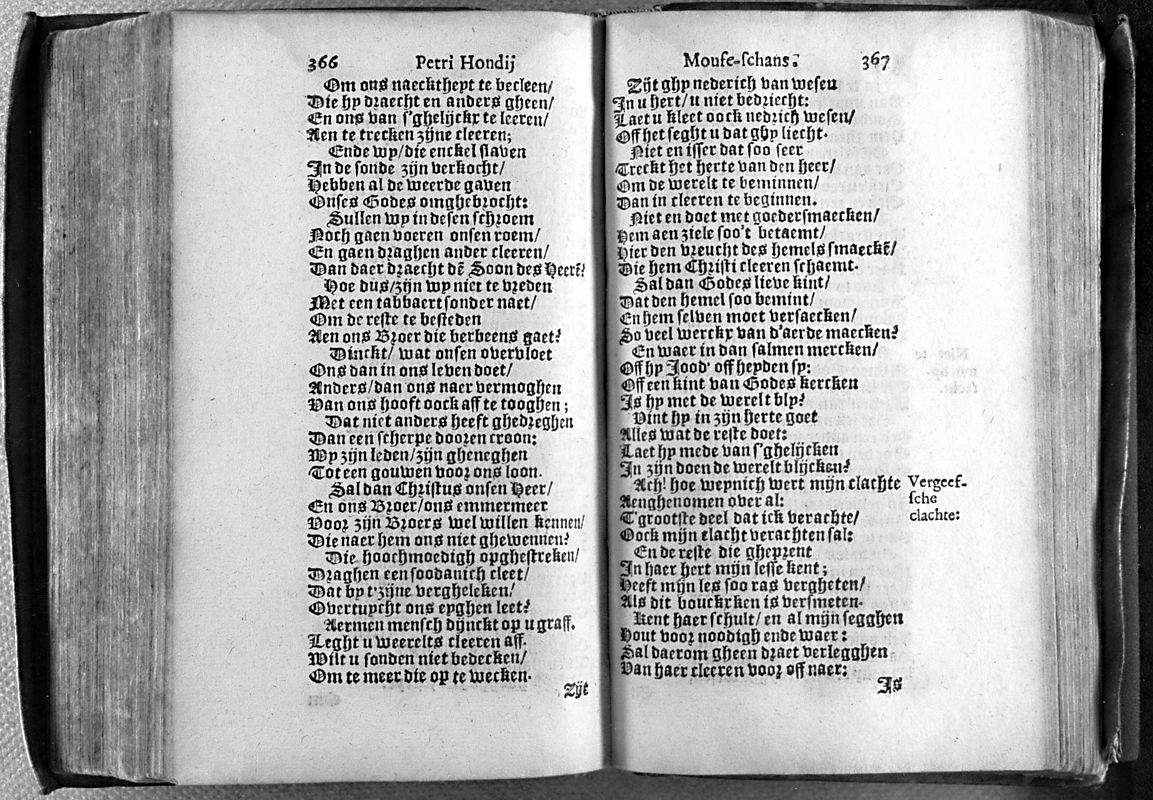 366 Petri Hondij
Om ons naecktheyt te becleen/
Die hy draecht en anders gheen/
En ons van s'ghelijckx te leeren/
Aen te trecken zijne cleeren;
Ende wy/die enckel slaven
In de sonde zijn verkocht/
Hebben al de weerde gaven
Onses Godes omghebrocht:
Sullen wy in desen schroem
Noch gaen voeren onsen roem/
En gaen draghen ander cleeren/
Dan daer draecht dē Soon des Heerē?
Hoe dus/zijn wy niet te vreden
Met een tabbaert sonder naet/
Om de reste te besteden
Aen ons Broer die berbeens gaet?
Dinckt/ wat onsen overvloet
Ons dan in ons leven doet/
Anders/dan ons naer vermoghen
Van ons hooft oock aff te tooghen;
Dat niet anders heeft ghedreghen
Dan een scherpe dooren croon:
Wy zijn leden/zijn gheneghen
Tot een gouwen voor ons loon.
Sal dan Christus onsen Heer/
En ons Broer/ons emmermeer
Voor zijn Broers wel willen kennen/
Die naer hem ons niet ghewennen?
Die hoochmoedigh opghestreken/
Draghen een soodanich cleet/
Dat by t'zijne vergheleken/
Overtuycht ons eyghen leet?
Aermen mensch dijnckt op u graff.
Leght u weerelts cleeren aff.
Wilt u sonden niet bedecken/
Om te meer die op te wecken.
Zijt
Mouse-schans: 367
Zijt ghy nederich van wesen
In u hert/u niet bedriecht:
Laet u kleet oock nedrich wesen/
Off het seght u dat ghy liecht.
Niet en isser dat soo seer
Treckt het herte van den heer/
Om de werelt te beminnen/
Dan in cleeren te beginnen.
Niet en doet met goedersmaecken/
Hem aen ziele soo't betaemt/
Hier den vreucht des hemels smaeckē/
Die hem Christi cleeren schaemt.
Sal dan Godes lieve kint/
Dat den hemel soo bemint/
En hem selven moet versaecken/
So veel werckx van d'aerde maecken?
En waer in dan salmen mercken/
Off hy Jood' off heyden sy:
Off een kint van Godes kercken
Is hy met de werelt bly?
Vint hy in zijn herte goet
Alles wat de reste doet:
Laet hy mede van s'ghelijcken
In zijn doen de werelt blijcken?
Ach! hoe weynich wert mijn clachte
Aenghenomen over al:
T'grootste deel dat ick verachte/
Oock mijn clacht verachten sal:
En de reste die gheprent
In haer hert mijn lesse kent;
Heeft mijn les soo ras vergheten/
Als dit bouckxken is versmeten.
Kent haer schult/ en al mijn segghen
Hout voor noodigh ende waer:
Sal daerom gheen draet verlegghen
Van haer cleeren voor off naer:
Is
Vergeef-
sche
clachte: